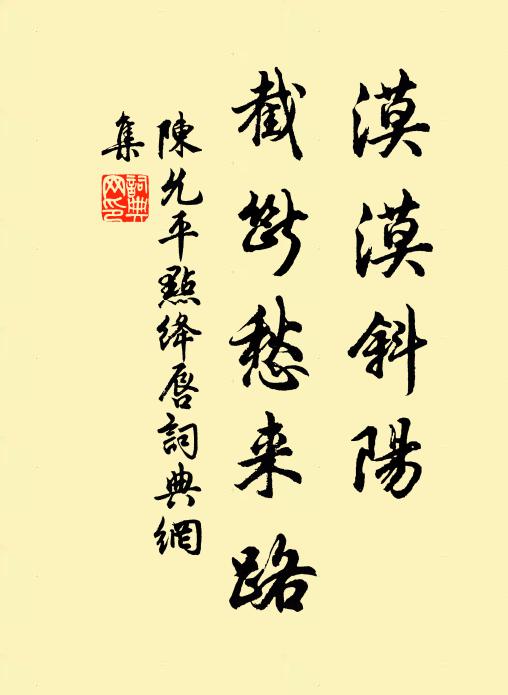 漠漠斜陽
截斷愁来路
陳允平點绛唇詞典網
集
詞典網印